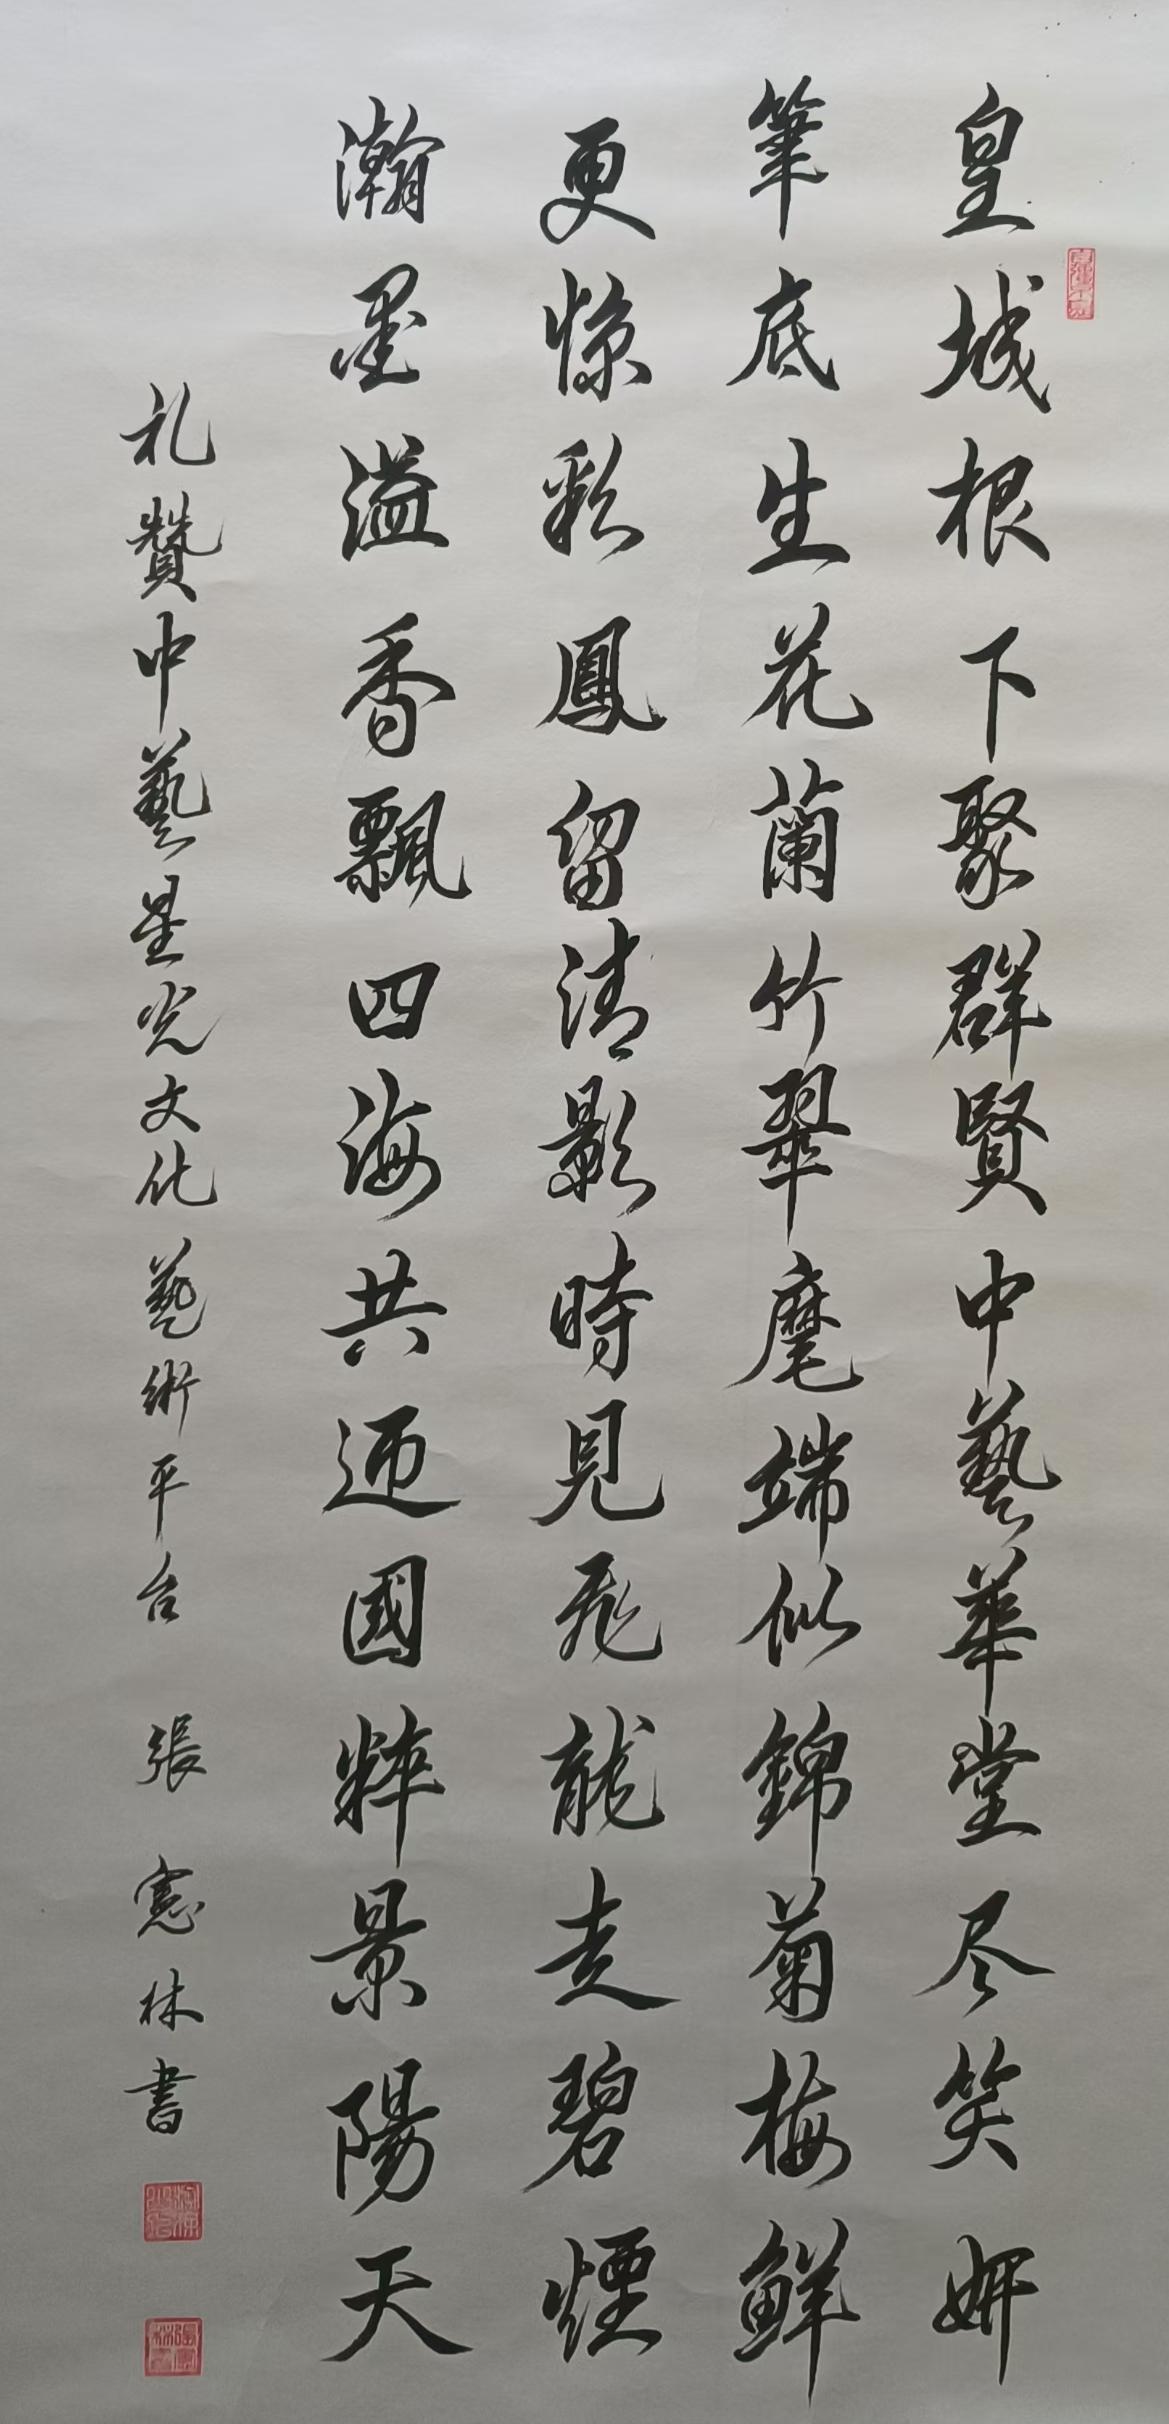 皇城根下聚群賢中藝華堂尽笑妍
筆底生花蘭竹翠麾端似錦菊梅鮮
更惊彩鳳留清影時見飛龍走碧煙
瀚墨溢香飄四海共迎國粹景陽天
礼贊中藝星光文化藝術平台 張憲林書